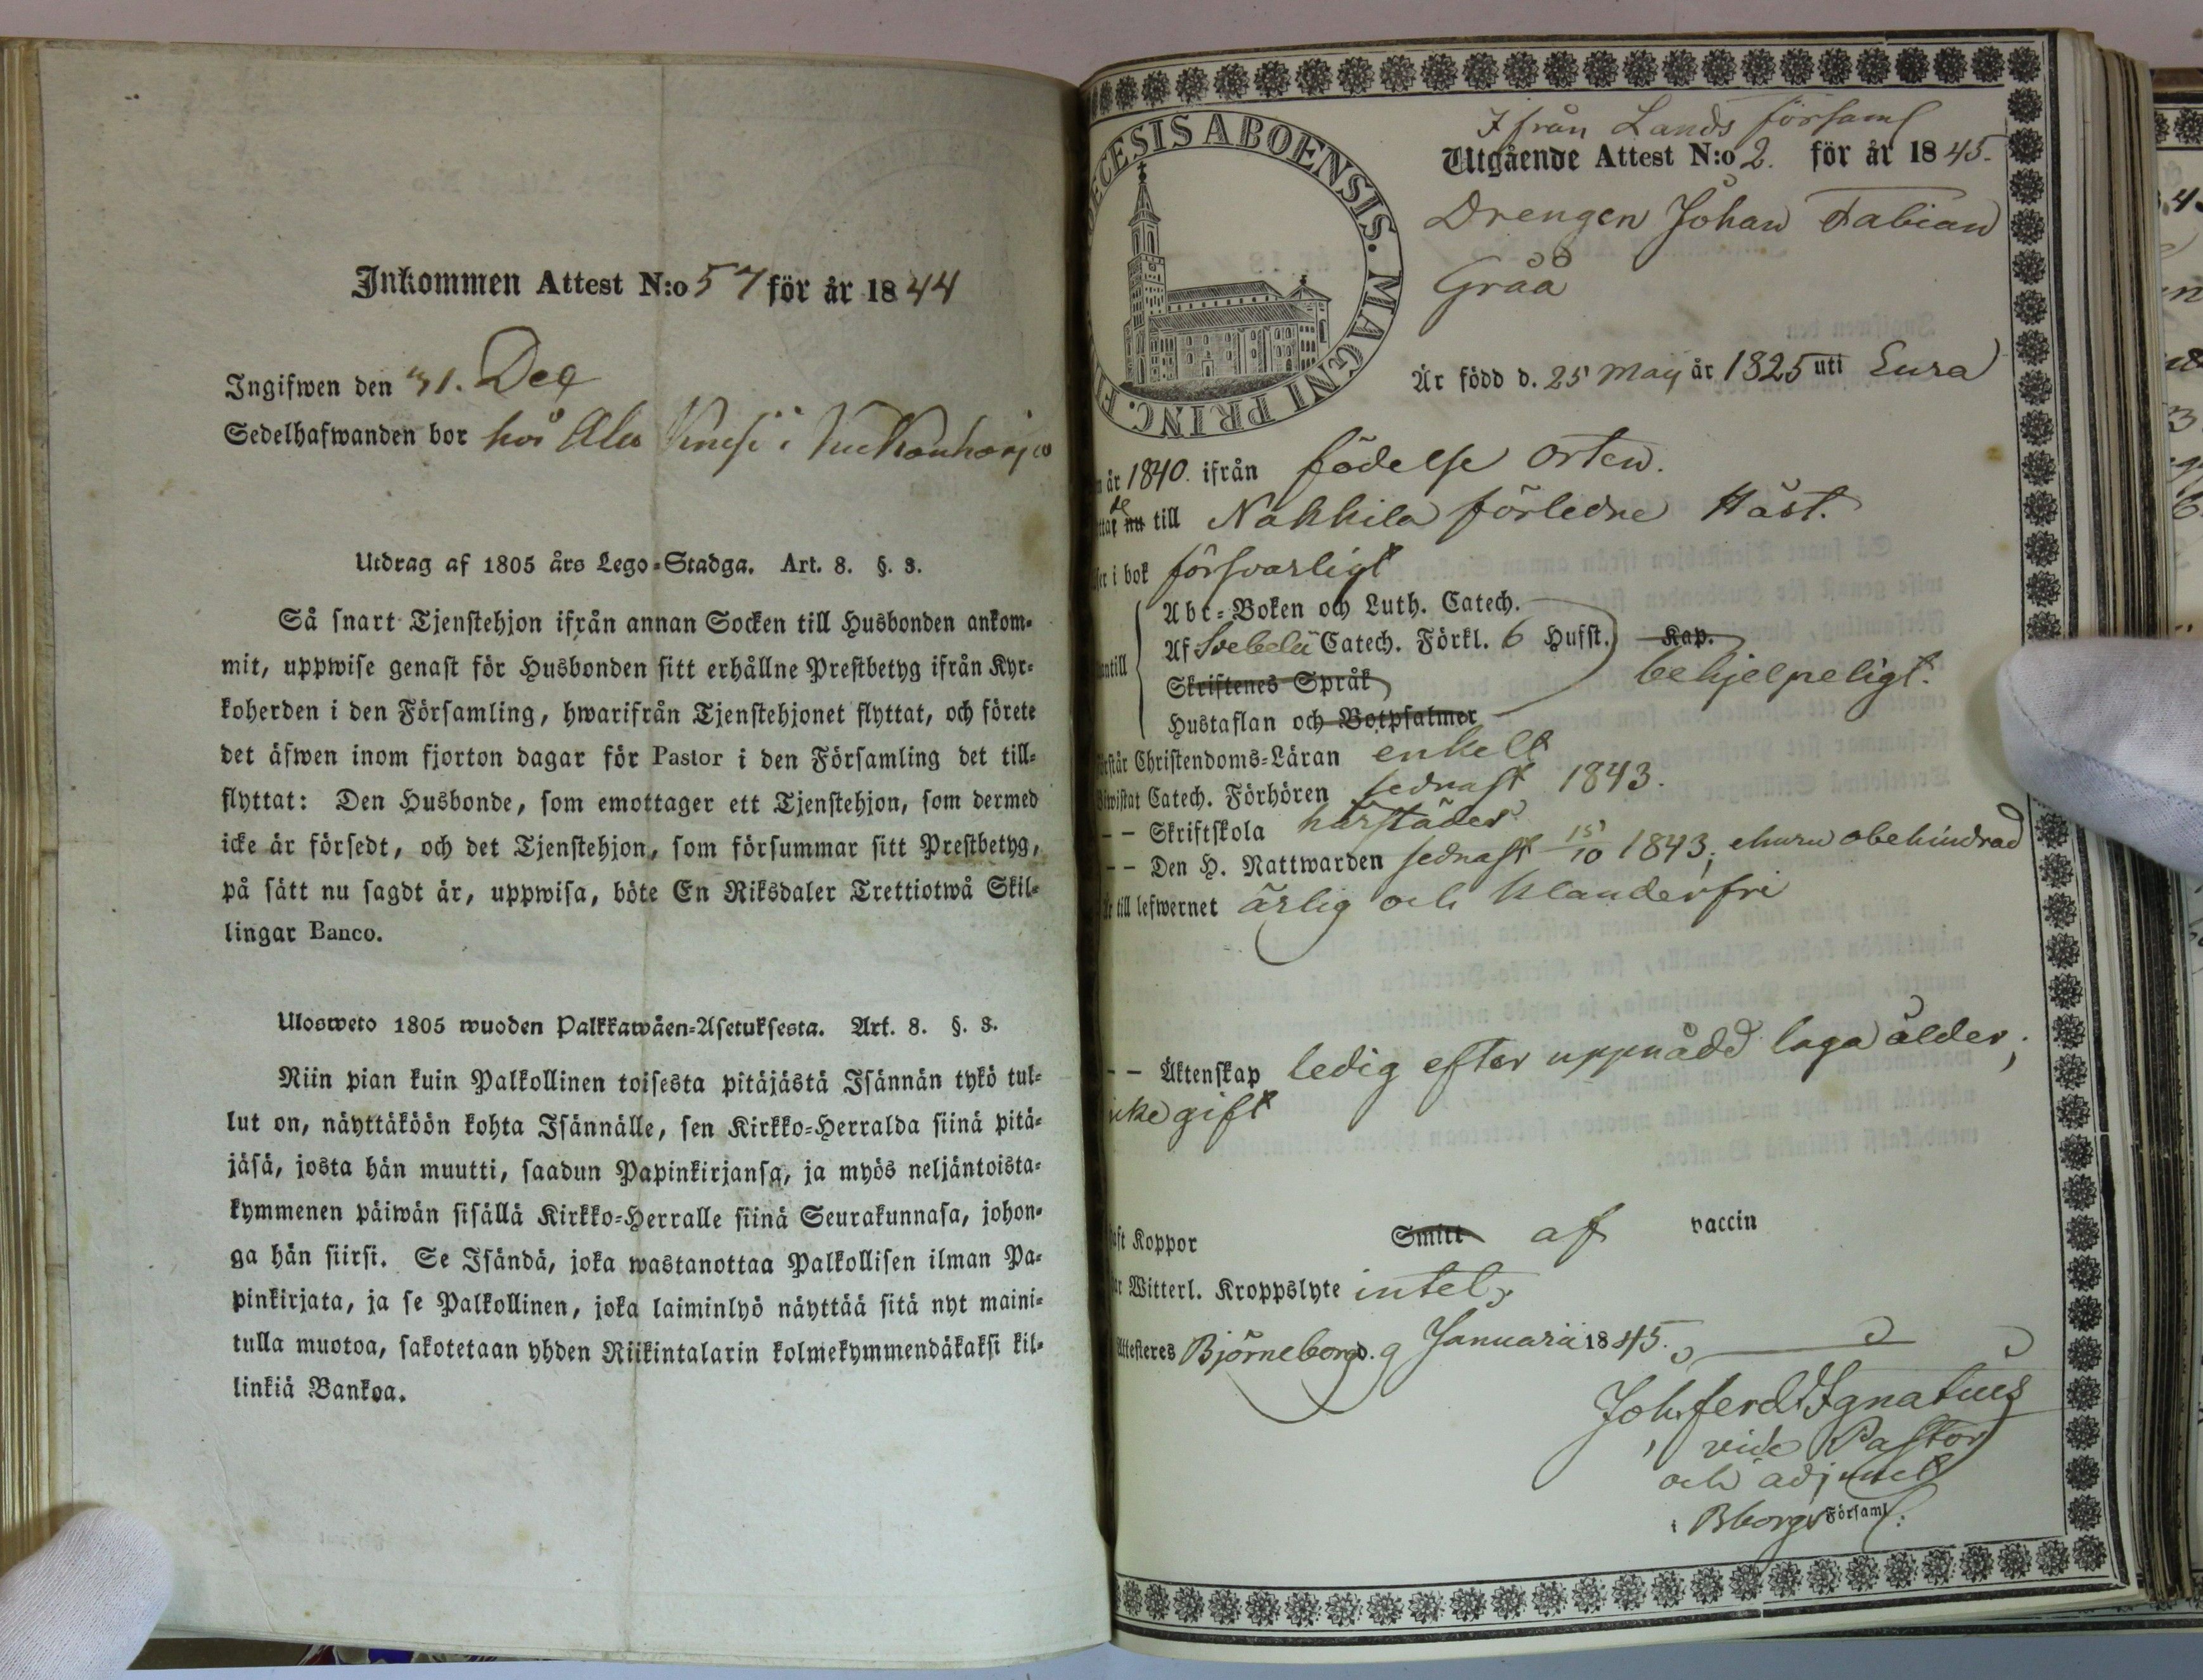 Inkommen Attest N:o 57 för år 1844
Ingifwen den 31. Dec
Sedelhafwanden bor hos i
Utdrag af 1805 års Lego-Stadga. Art. 8. §. 3.
Så snart Tjenstehjon ifrån annan Socken till Husbonden ankom-
mit, uppwise genast för Husbonden sitt erhållne Prestbetyg ifrån Kyr-
koherden i den Församling, hwarifrån Tjenstehjonet flyttat, och förete
det äfwen inom fjorton dagar för Pastor i den Församling det till-
flyttat: Den Husbonde, som emottager ett Tjenstehjon, som dermed
icke är försedt, och det Tjenstehjon, som försummar sitt Prestbetyg,
på sätt nu sagdt är, uppwisa, böte En Riksdaler Trettiotwå Skil-
lingar Banco.
Ulosweto 1805 wuoden Palkkawäen-Asetuksesta. Art. 8. §. 3.
Niin pian kuin Palkollinen toisesta pitäjästä Isännän tykö tul-
lut on, näyttäköön kohta Isännälle, sen Kirkko-Herralda siinä pitä-
jäsä, josta hän muutti, saadun Papinkirjansa, ja myös neljäntoista-
kymmenen päiwän sisällä Kirkko-Herralle siinä Seurakunnasa, johon-
ga hän siirsi. Se Isändä, joka wastanottaa Palkollisen ilman Pa-
pinkirjata, ja se Palkollinen, joka laiminlyö näyttää sitä nyt maini-
tulla muotoa, sakotetaan yhden Riikintalarin kolmekymmendäkaksi kil-
linkiä Bankoa.
DECESIS ABOENSIS. MAGNI PRINC. F
Ifrån Lands församl
Utgående Attest N:o 2. för år 1845.
Drengen Johan Fabian
Gråå
Är född d. 25 Maij år 1825 uti Eura
år 1840. ifrån födelse orten.
de nu till Nakkila förledne Höst.
i bok försvarligt
Abc-Boken och Luth. Catech.
Af Svebelii Catech. Förkl. 6 Hufst. Kap.
behjelpeligt.
Skriftenes Språk
Hustaflan och Botpsalmer
Christendoms-Läran enkelt
Catech. Förhören sednast 1843.
— — Skriftskola härstädes
— — Den H. Nattwarden sednast 15/10 1843, ehuru obehindrad
till lefwernet ärlig och klanderfri
— — Äktenskap ledig efter uppnådd laga ålder;
icke gift
Koppor Smitt af vaccin
Witterl. Kroppslyte intet
Attesteres Björneborg d. 9 Januarii 1845.
Joh. Ferd. Ignatius
vice Pastor
och adjunct
i Bborgs Församl: